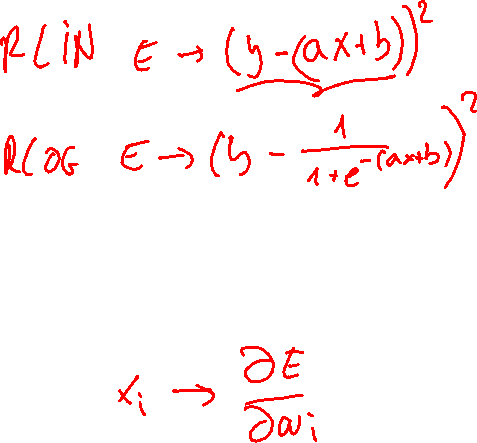 RLIN E → (y - (ax+b))²
RLOG E → (y - 1/(1+e^-(ax+b)))²
x_i → ∂E/∂w_i